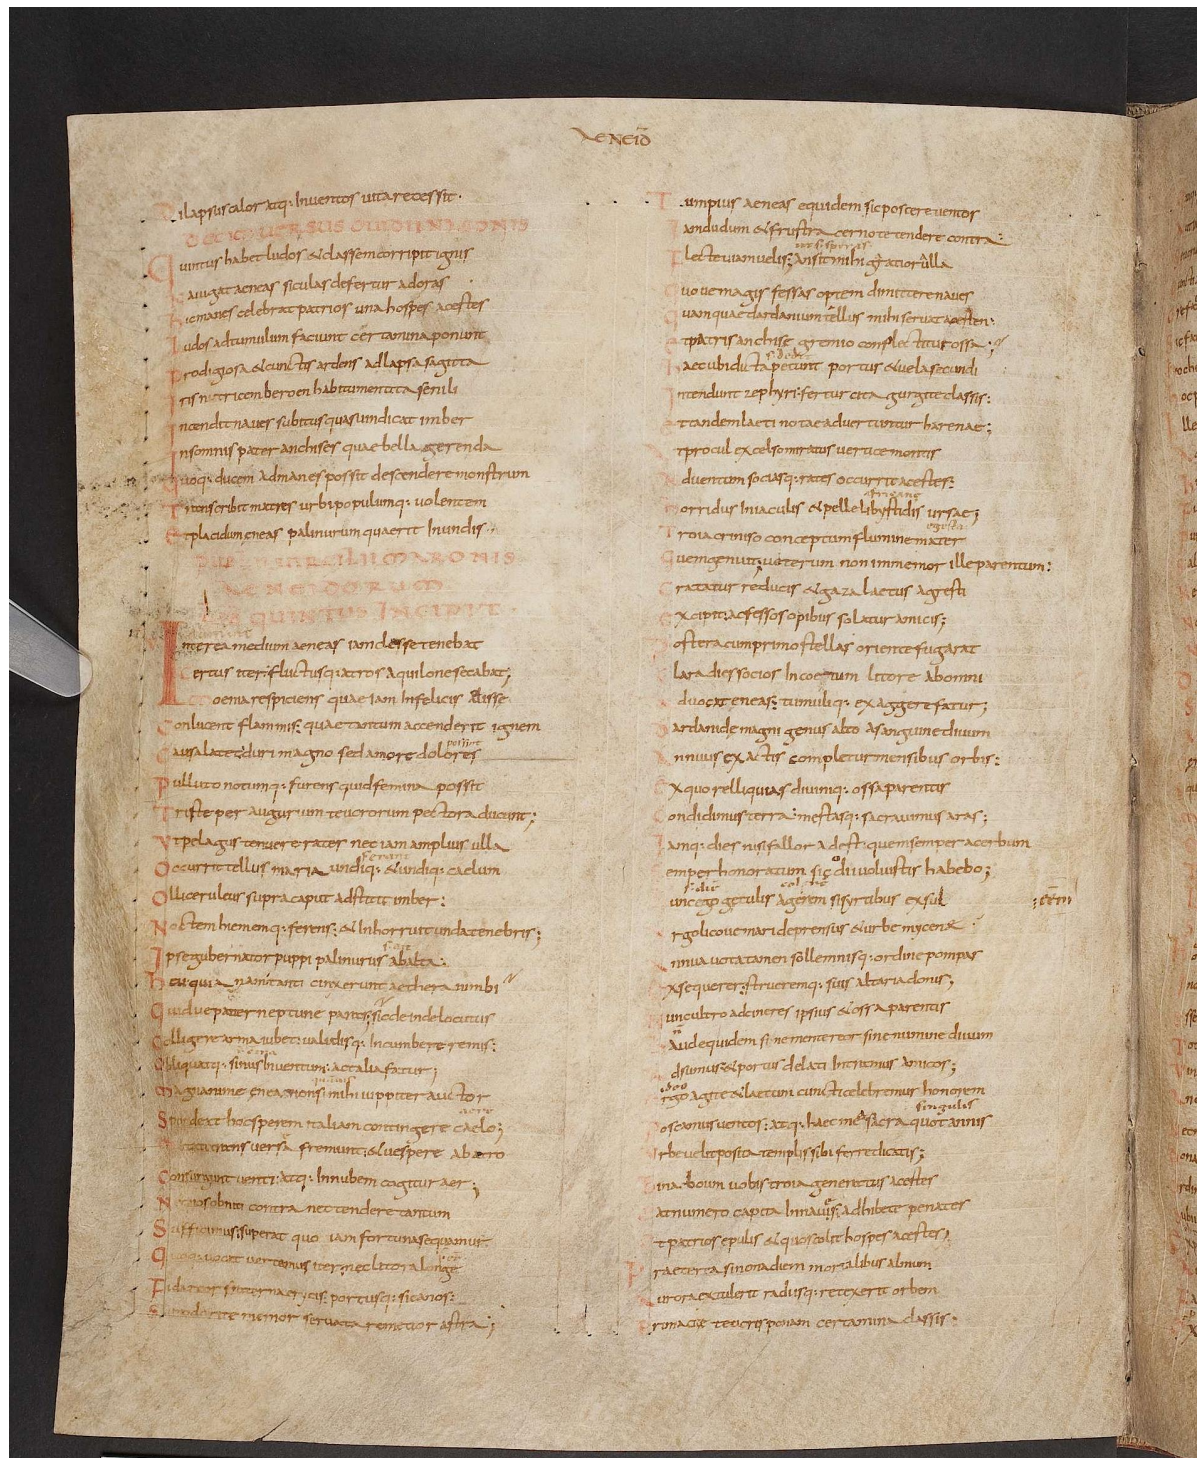 Aeneid
Dilapsus calor atq: In ventos vita recessit.
DECIM VERSUS OVIDII NASONIS
Quintus habet ludos & classem corripit ignis
Navigat aeneas siculas defertur ad oras
Hic manes celebrat patrios una hospes acestes
Ludos ad tumulum faciunt certamina ponunt
Prodigiosa & cunctis ardens adlapsa sagitta
Iris nutricem beroen habitu mentita senili
Incendit naves subitus quas vindicat imber
In somnis pater anchises quae bella gerenda
Quoq: ducem ad manes possit descendere monstrum
Transcribit matres urbi populumq: volentem
Et placidum eneas palinurum quaerit In undis
VIRGILII MARONIS
AENEIDORUM
QUINTUS INCIPIT
Interea medium aeneas iam classe tenebat
Certus iter: fluctusq: atros aquilone secabat;
Moenia respiciens quae iam Infelicis elisse
Conlucent flammis: quae tantum accenderit ignem
Causa latet: duri magno sed amore dolores
Polluto notumq: furens quid femina possit
Triste per augurium teucrorum pectora ducunt;
Ut pelagus tenuere rates nec iam amplius ulla
Occurrit tellus maria undiq: & undiq: caelum
Olli ceruleus supra caput adstitit imber:
Noctem hiememq: ferens: & Inhorruit unda tenebris;
Ipse gubernator puppi palinurus ab alta:
heu quia nam tanti cinxerunt aethera nimbi
Quidve pater neptune paras; sic deinde locutus
Colligere arma iubet: validisq: Incumbere remis:
Obliquatq: sinus In ventum: ac talia fatur;
Magnanime enea non si mihi iuppiter auctor
Spondeat hoc sperem italiam contingere caelo;
Mutati trans versa fremunt; & vespere ab atro
Consurgunt venti: atq: In nubem cogitur aer;
Nec nos obniti contra nec tendere tantum
Sufficimus: superat quo iam fortuna sequamur
Quoq: vocat vertamus iter: nec litora longe
Fida reor fraterna erycis: portusq: sicanos:
Si modo rite memor servata remetior astra;
Tum pius aeneas equidem sic poscere ventos
Iamdudum & frustra cerno te tendere contra:
Flecte viam velis; an sit mihi gratior ulla
Quove magis fessas optem dimittere naves
Quam quae dardanium tellus mihi servat acesten:
Et patris anchise gremio complectitur ossa:
Haec ubi dicta petunt portus & vela secundi
Intendunt zephyri: fertur cita gurgite classis:
Et tandem laeti notae advertuntur harenae;
At procul excelso miratus vertice montis
Adventum sociasq: rates occurrit acestes:
africane
Horridus In iaculis & pelle libystidis ursae;
Troia criniso conceptum flumine mater
Quem genuit; veterum non immemor ille parentum:
Gratatur reduces & gaza laetus agresti
Excipit: ac fessos opibus solatur amicis;
Postera cum primo stellas oriente fugarat
Clara dies socios In coetum litore ab omni
Advocat eneas: tumuliq: ex aggere fatur;
Dardanide magni genus alto a sanguine divum
Annuus exactis completur mensibus orbis:
Ex quo relliquias divinıq: ossa parentis
Condidimus terra: mestasq: sacravimus aras;
Iamq: dies nisi fallor adest: quem semper acerbum
Semper honoratum sic di voluistis habebo;
Hunc ego getulis agerem si syrtibus exsul
Argolicove mari deprensus & urbe mycene
Annua vota tamen sollemnisq: ordine pompas
Exsequerer: strueremq: suis altaria donis;
Nunc ultro ad cineres ipsius & ossa parentis
Haud equidem sine mente reor sine numine divum
Adsumus: & portus delati Intramus amicos;
Ergo agite & laetum cuncti celebremus honorem
singulis
Poscamus ventos: atq: haec me sacra quotannis
Urbe velit posita templis sibi ferre dicatis;
Bina boum vobis troia generatus acestes
Dat numero capita In navis: adhibete penates
Et patrios epulis & quos colit hospes acestes;
Praeterea si nona diem mortalibus almum
Aurora extulerit radiisq: retexerit orbem
Prima citae teucris ponam certamina classis: